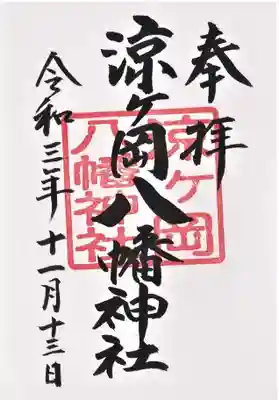 奉拝
涼ケ岡八幡神社
涼ケ岡
八幡神社
令和三年十一月十三日